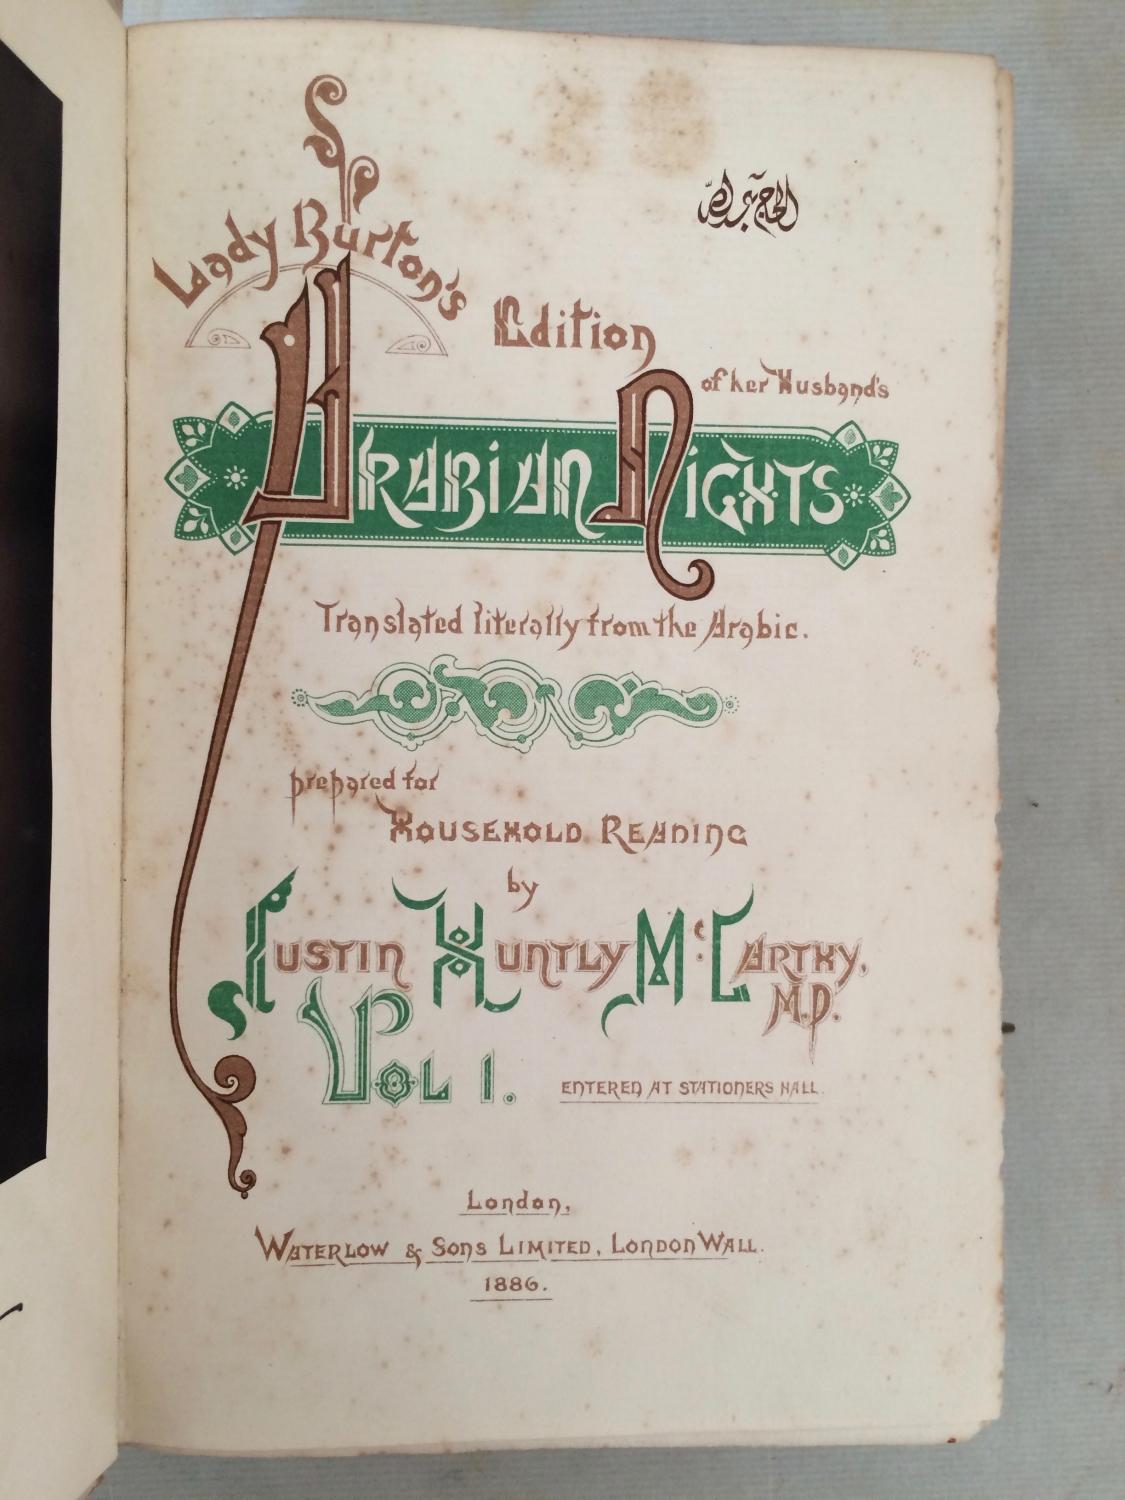 الحاج عبدالله
Lady Burton's
Edition
of her Husband's
ARABIAN NIGHTS
Translated literally from the Arabic.
prepared for
HOUSEHOLD READING
by
JUSTIN HUNTLY McCARTHY,
M.P.
VOL 1.
ENTERED AT STATIONERS HALL.
London,
WATERLOW & SONS LIMITED, LONDON WALL.
1886.